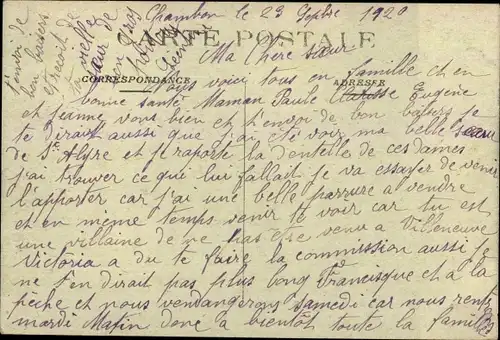 Chambon le 23 Septbre 1920
CARTE POSTALE
Ma Chere sœur
CORRESPONDANCE
ADRESSE
Nous voici tous en famille et en
bonne santé, Maman Paule Clarisse Eugène
et Jeanne vous bien et t'envoi de bon baisers je
te dirait aussi que j'ai été voir ma belle sœur
de St Alyre et raporte la dentelle de ces dames
j'ai trouver ce que lui fallait je va essayer de venir
l'apporter car j'ai une belle parrure a vendre
et en même temps venir te voir car tu est
une villaine de ne pas être venu a Villeneuve
Victoria a du te faire la commission aussi je
ne t'en dirait pas plus long Francisque et a la
pêche et nous vendangerons samedi car nous rent
mardi Matin donc a bientôt toute la famille
t'envoi de
bon baisers
et recoit de
ta vielle
sœur de
Gros